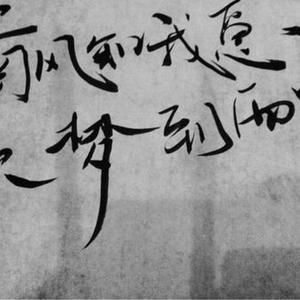 南风知我意
梦到西